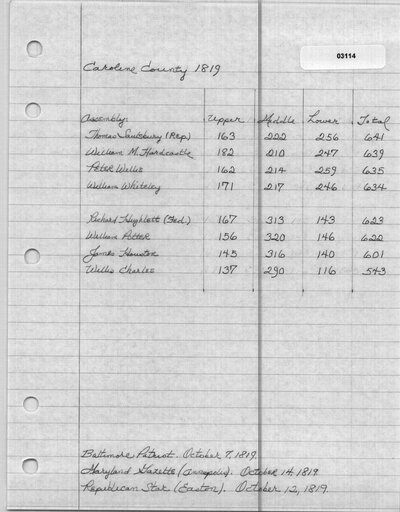 03114
Caroline County 1819
Assembly: Upper Middle Lower Total
Thomas Saulsbury (Rep) 163 222 256 641
William M. Hardcastle 182 210 247 639
Peter Willis 162 214 259 635
William Whiteley 171 217 246 634
Richard Hughlett (Fed.) 167 313 143 623
William Potter 156 320 146 622
James Houston 145 316 140 601
Willis Charles 137 290 116 543
Baltimore Patriot. October 7, 1819.
Maryland Gazette (Annapolis). October 14, 1819
Republican Star (Easton). October 12, 1819.